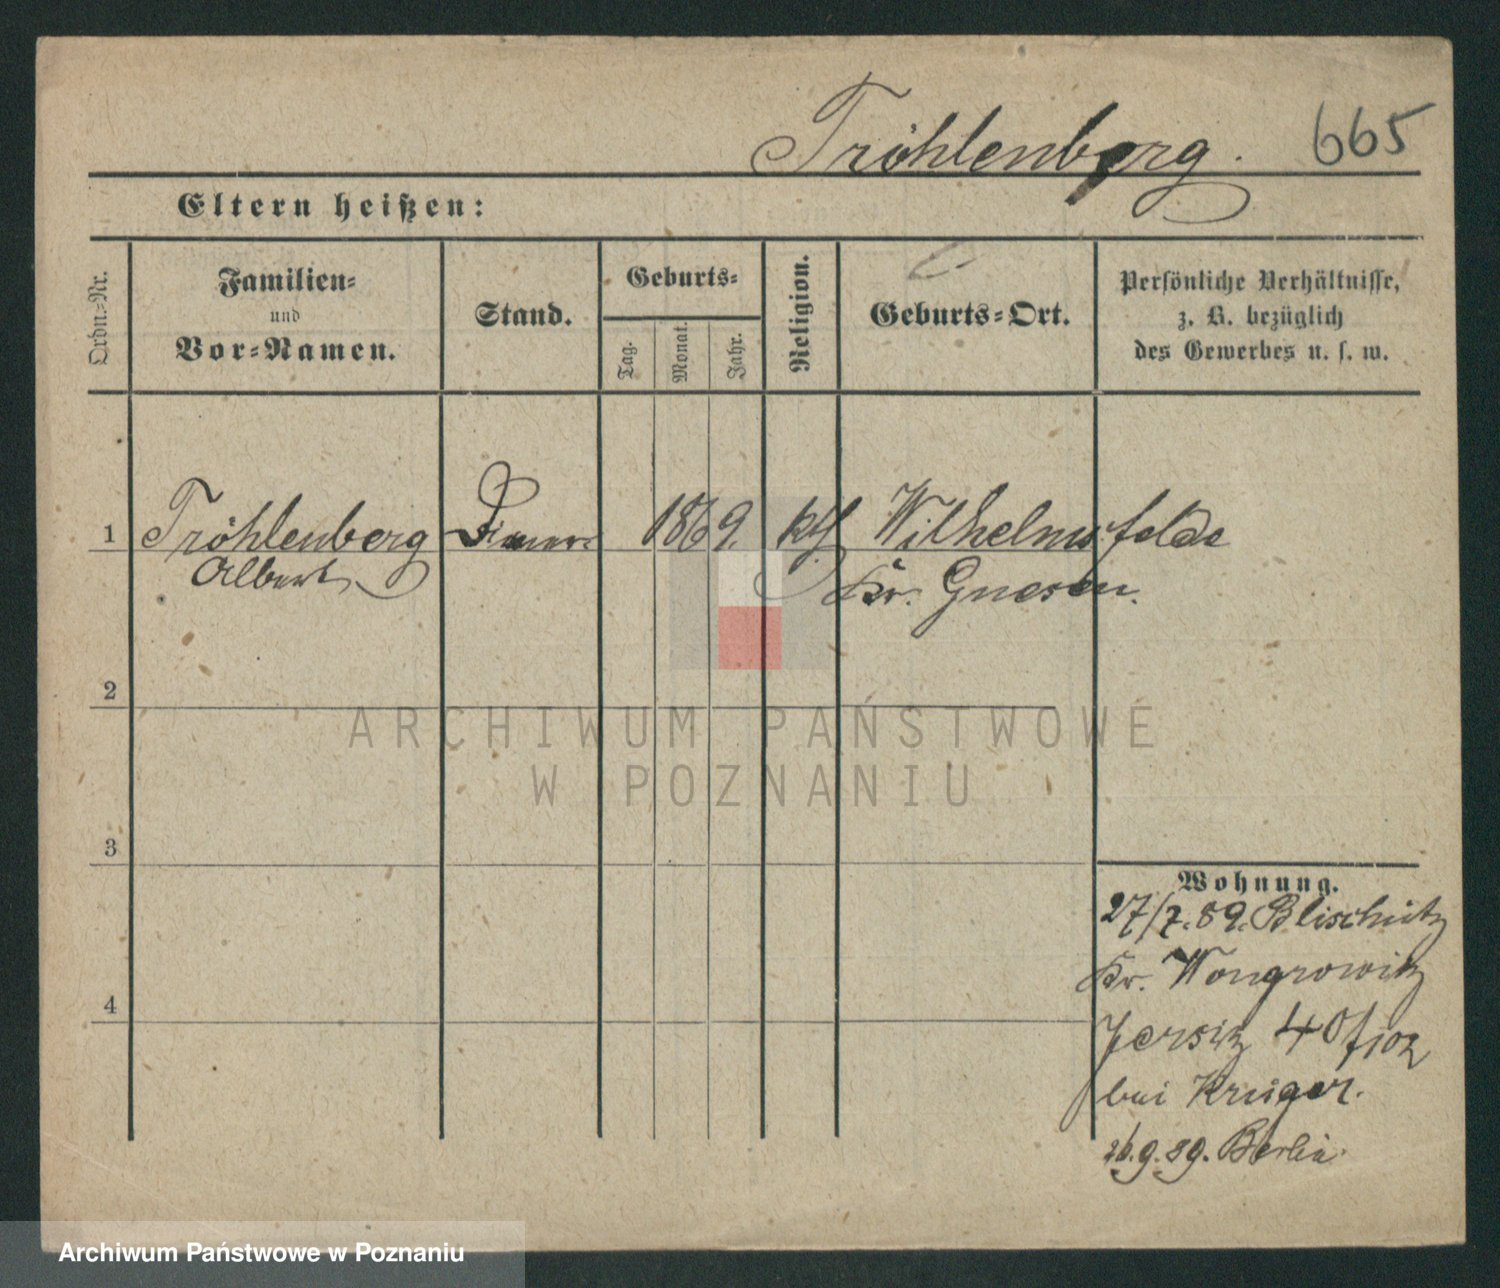 Tröhlenberg. 665
Eltern heißen:
Ordn.-Nr.
Familien-
und
Vor-Namen.
Stand.
Geburts-
Tag.
Monat.
Jahr.
Religion.
Geburts-Ort.
Persönliche Verhältnisse,
z. B. bezüglich
des Gewerbes u. s. w.
1 Tröhlenberg Diener 1869. kth Wilhelmsfelde
Albert Kr. Gnesen.
2
ARCHIWUM PAŃSTWOWE
W POZNANIU
3
Wohnung.
27/7. 89. Blischütz
Kr. Wongrowitz
4
Jersitz 40
bei Krüger.
26.9.89. Berlin.
Archiwum Państwowe w Poznaniu